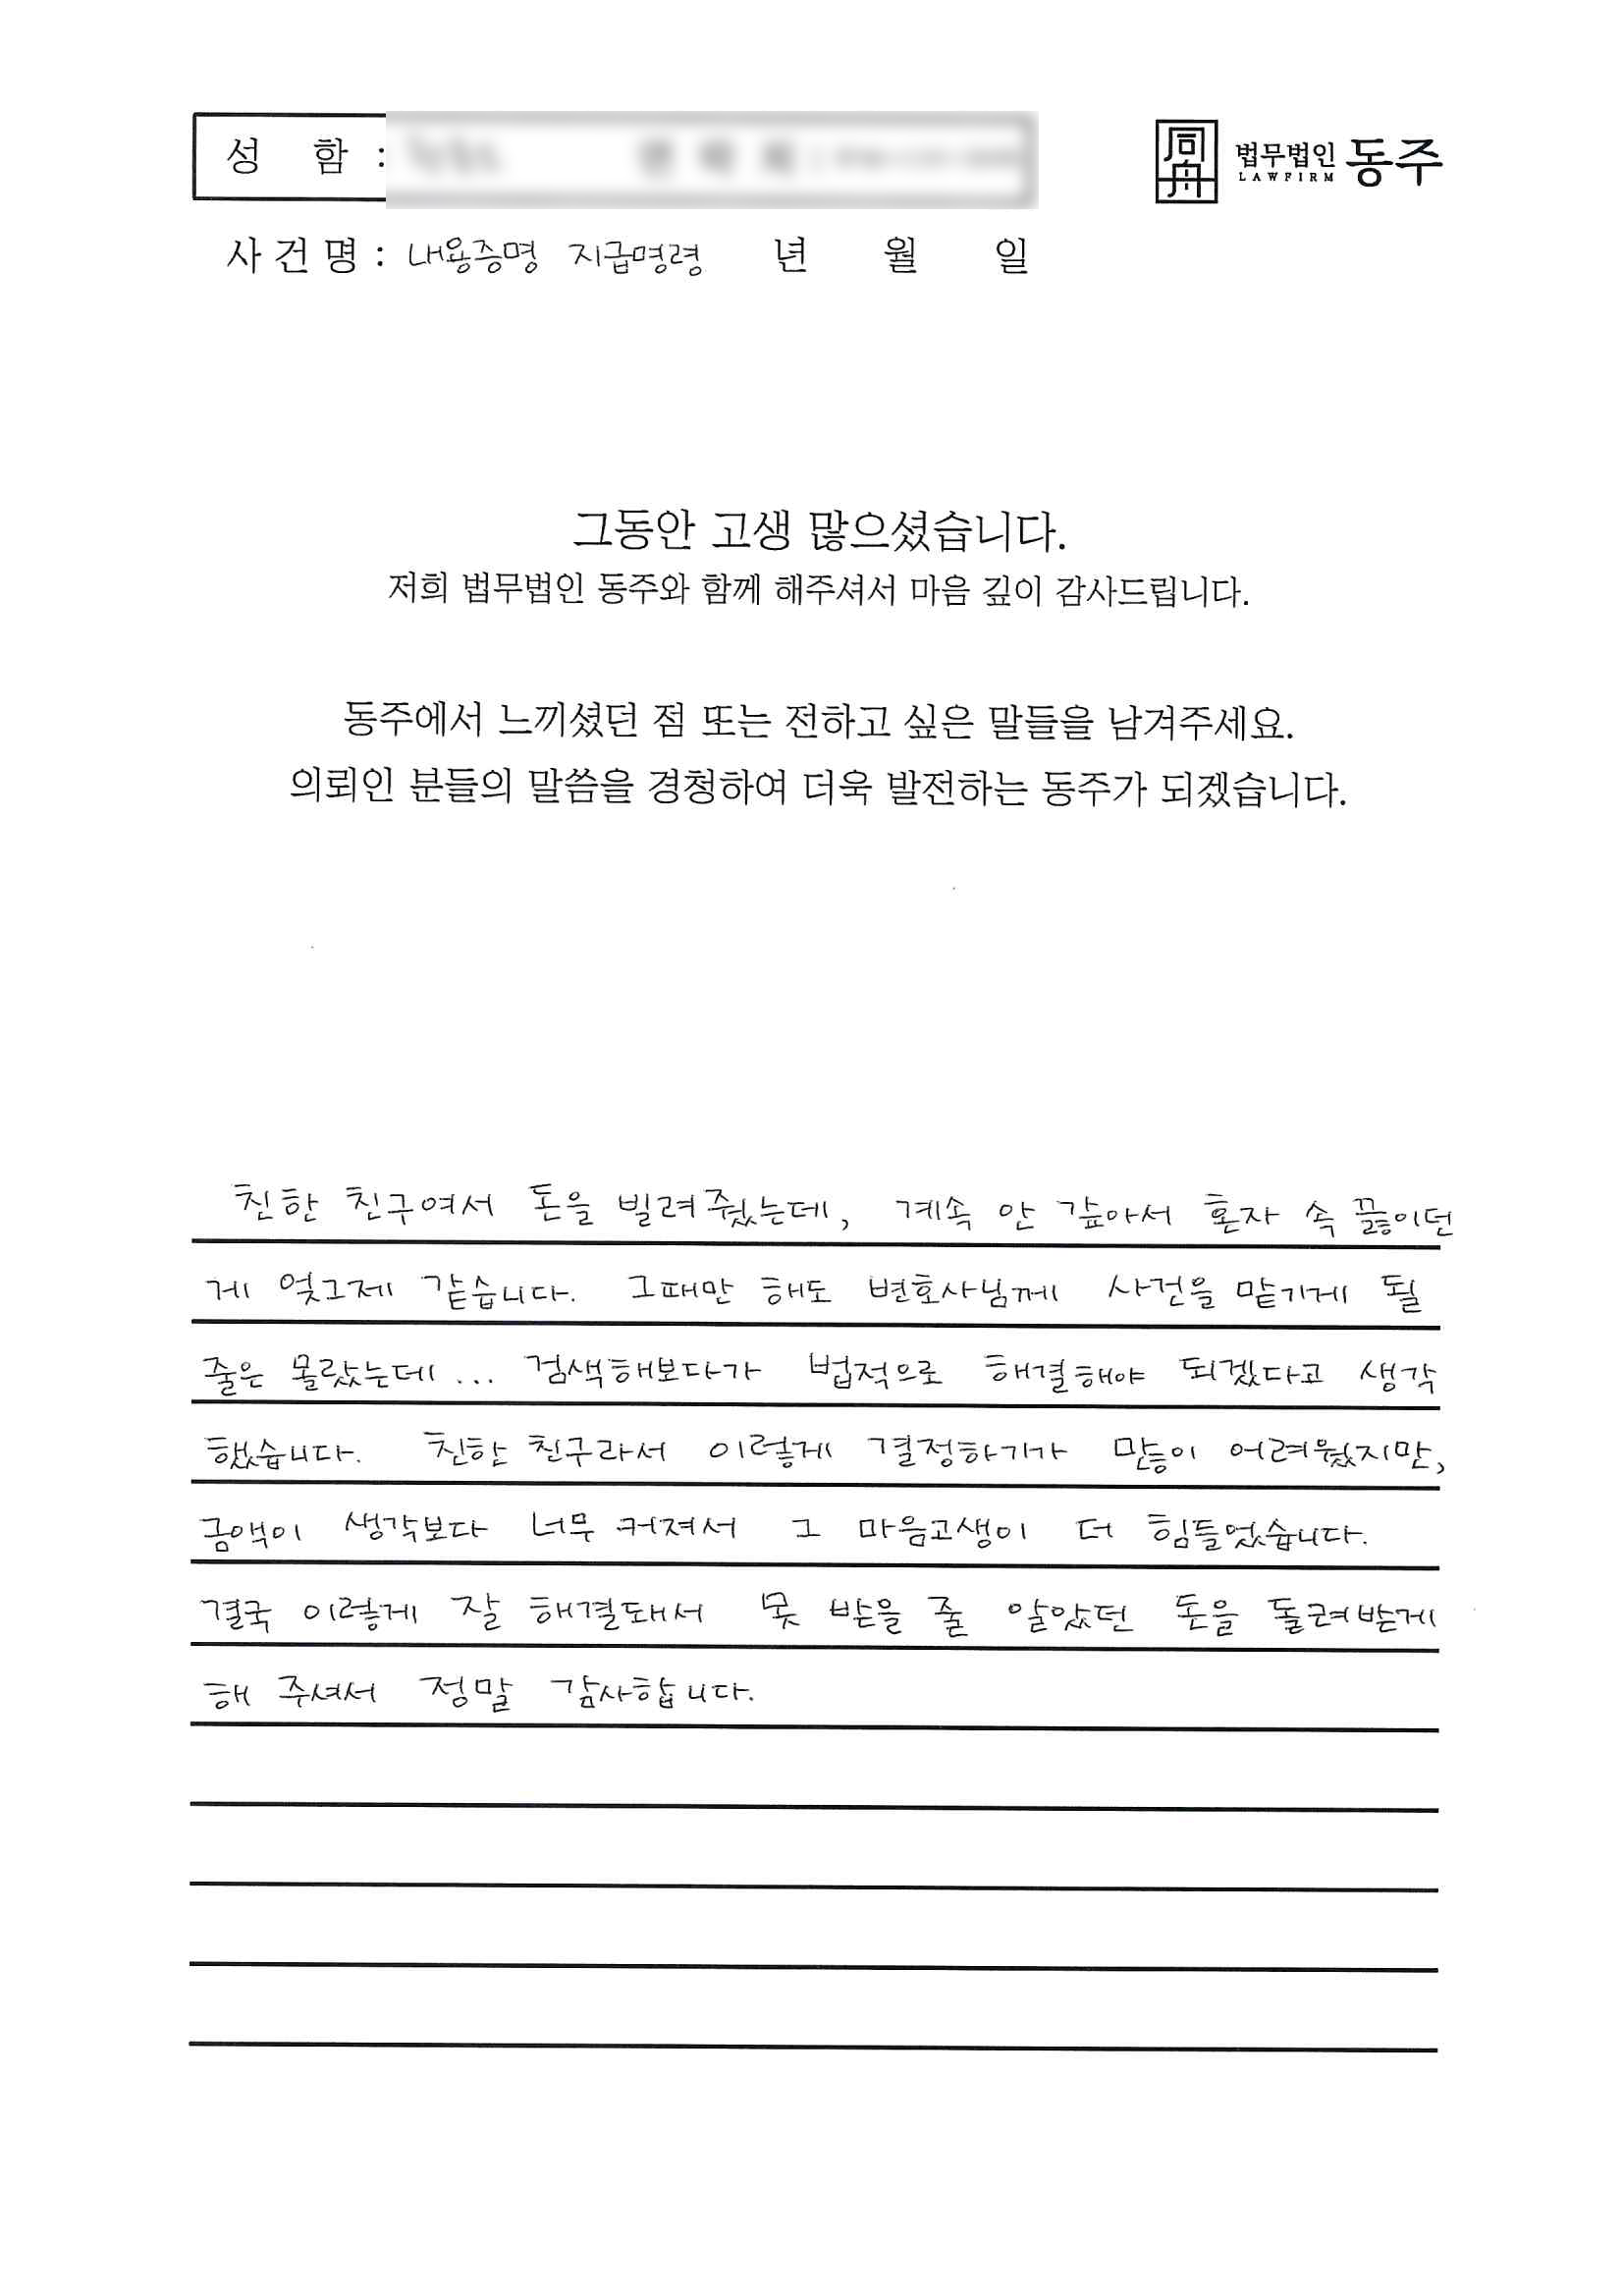 성 함 :
同舟 법무법인 동주
LAWFIRM
사 건 명 : 내용증명 지급명령 년 월 일
그동안 고생 많으셨습니다.
저희 법무법인 동주와 함께 해주셔서 마음 깊이 감사드립니다.
동주에서 느끼셨던 점 또는 전하고 싶은 말들을 남겨주세요.
의뢰인 분들의 말씀을 경청하여 더욱 발전하는 동주가 되겠습니다.
친한 친구여서 돈을 빌려줬는데, 계속 안 갚아서 혼자 속 끓이던
게 엊그제 같습니다. 그때만 해도 변호사님께 사건을 맡기게 될
줄은 몰랐는데... 검색해보다가 법적으로 해결해야 되겠다고 생각
했습니다. 친한 친구라서 이렇게 결정하기가 많이 어려웠지만,
금액이 생각보다 너무 커져서 그 마음고생이 더 힘들었습니다.
결국 이렇게 잘 해결돼서 못 받을 줄 알았던 돈을 돌려받게
해 주셔서 정말 감사합니다.